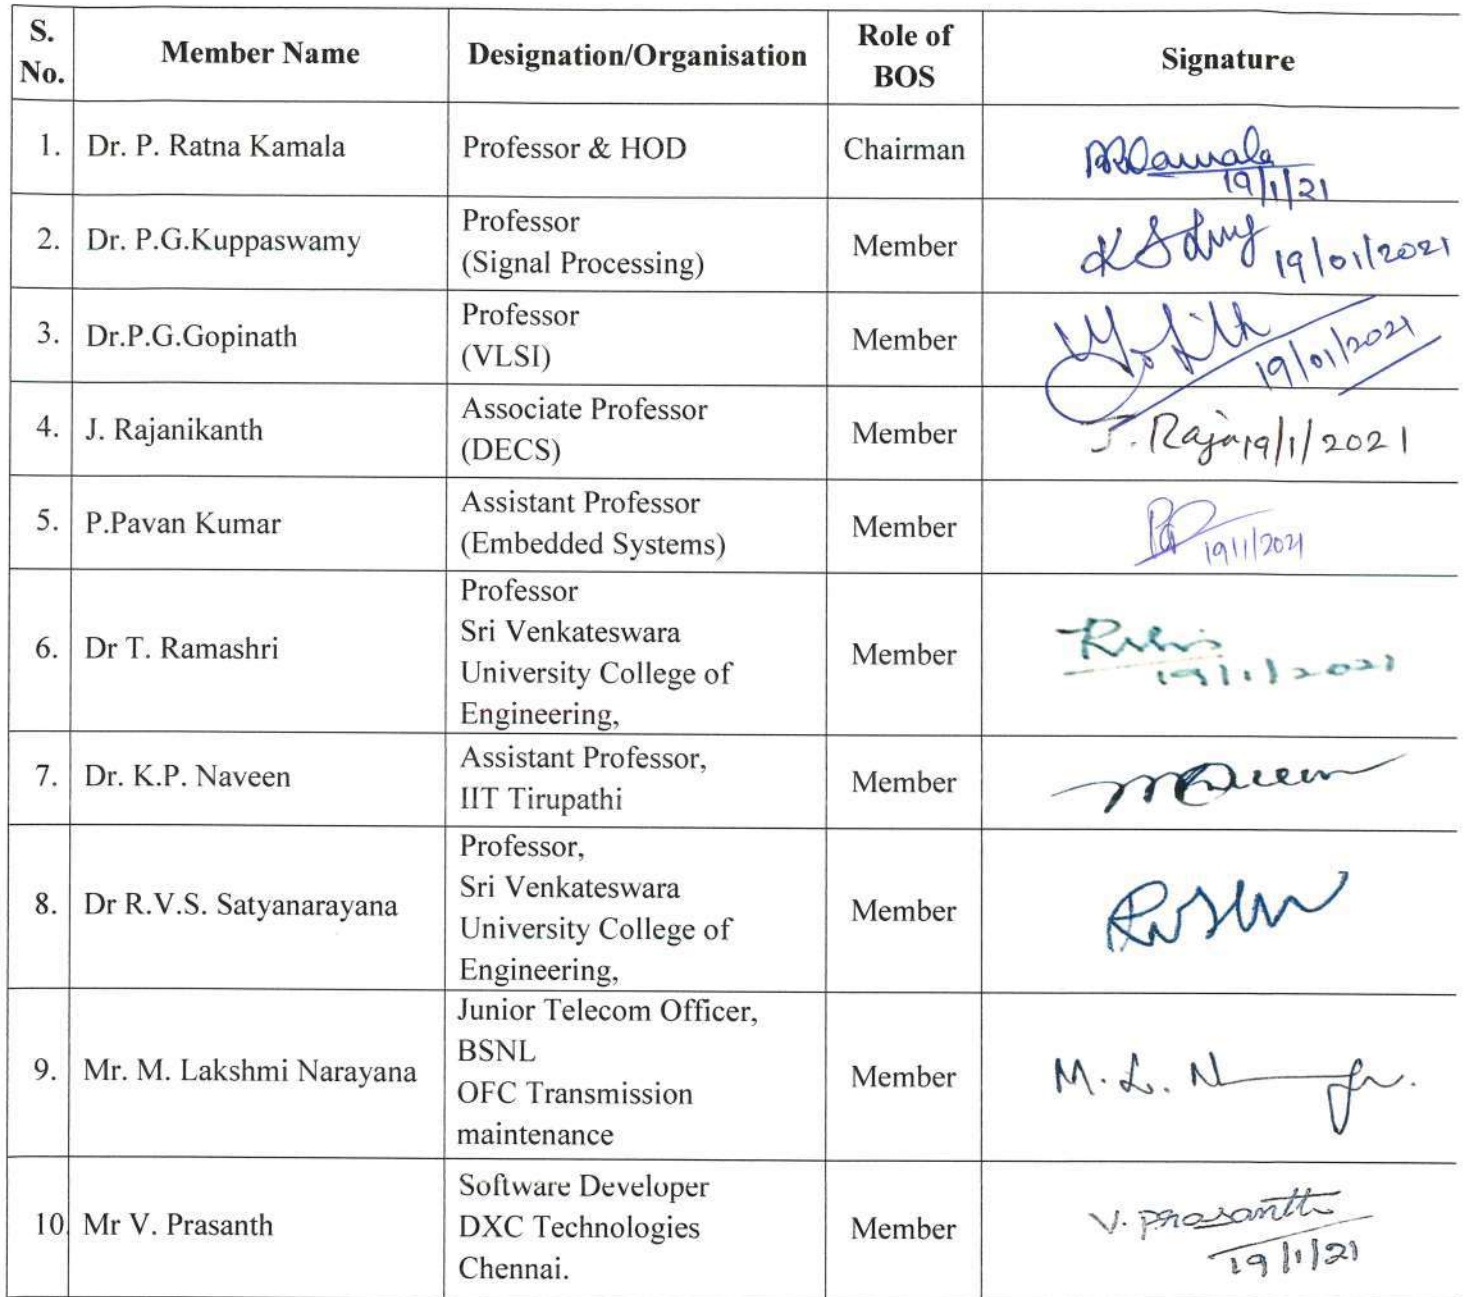 S. No. Member Name Designation/Organisation Role of BOS Signature
1. Dr. P. Ratna Kamala Professor & HOD Chairman
19/1/21
2. Dr. P.G.Kuppaswamy Professor (Signal Processing) Member 19/01/2021
3. Dr.P.G.Gopinath Professor (VLSI) Member 19/01/2021
4. J. Rajanikanth Associate Professor (DECS) Member J. Raja 19/1/2021
5. P.Pavan Kumar Assistant Professor (Embedded Systems) Member 19/1/2021
6. Dr T. Ramashri Professor
Sri Venkateswara
University College of
Engineering, Member
19/1/2021
7. Dr. K.P. Naveen Assistant Professor,
IIT Tirupathi Member
8. Dr R.V.S. Satyanarayana Professor,
Sri Venkateswara
University College of
Engineering, Member
9. Mr. M. Lakshmi Narayana Junior Telecom Officer,
BSNL
OFC Transmission
maintenance Member M. L. N
10. Mr V. Prasanth Software Developer
DXC Technologies
Chennai. Member V. Prasanth
19/1/21